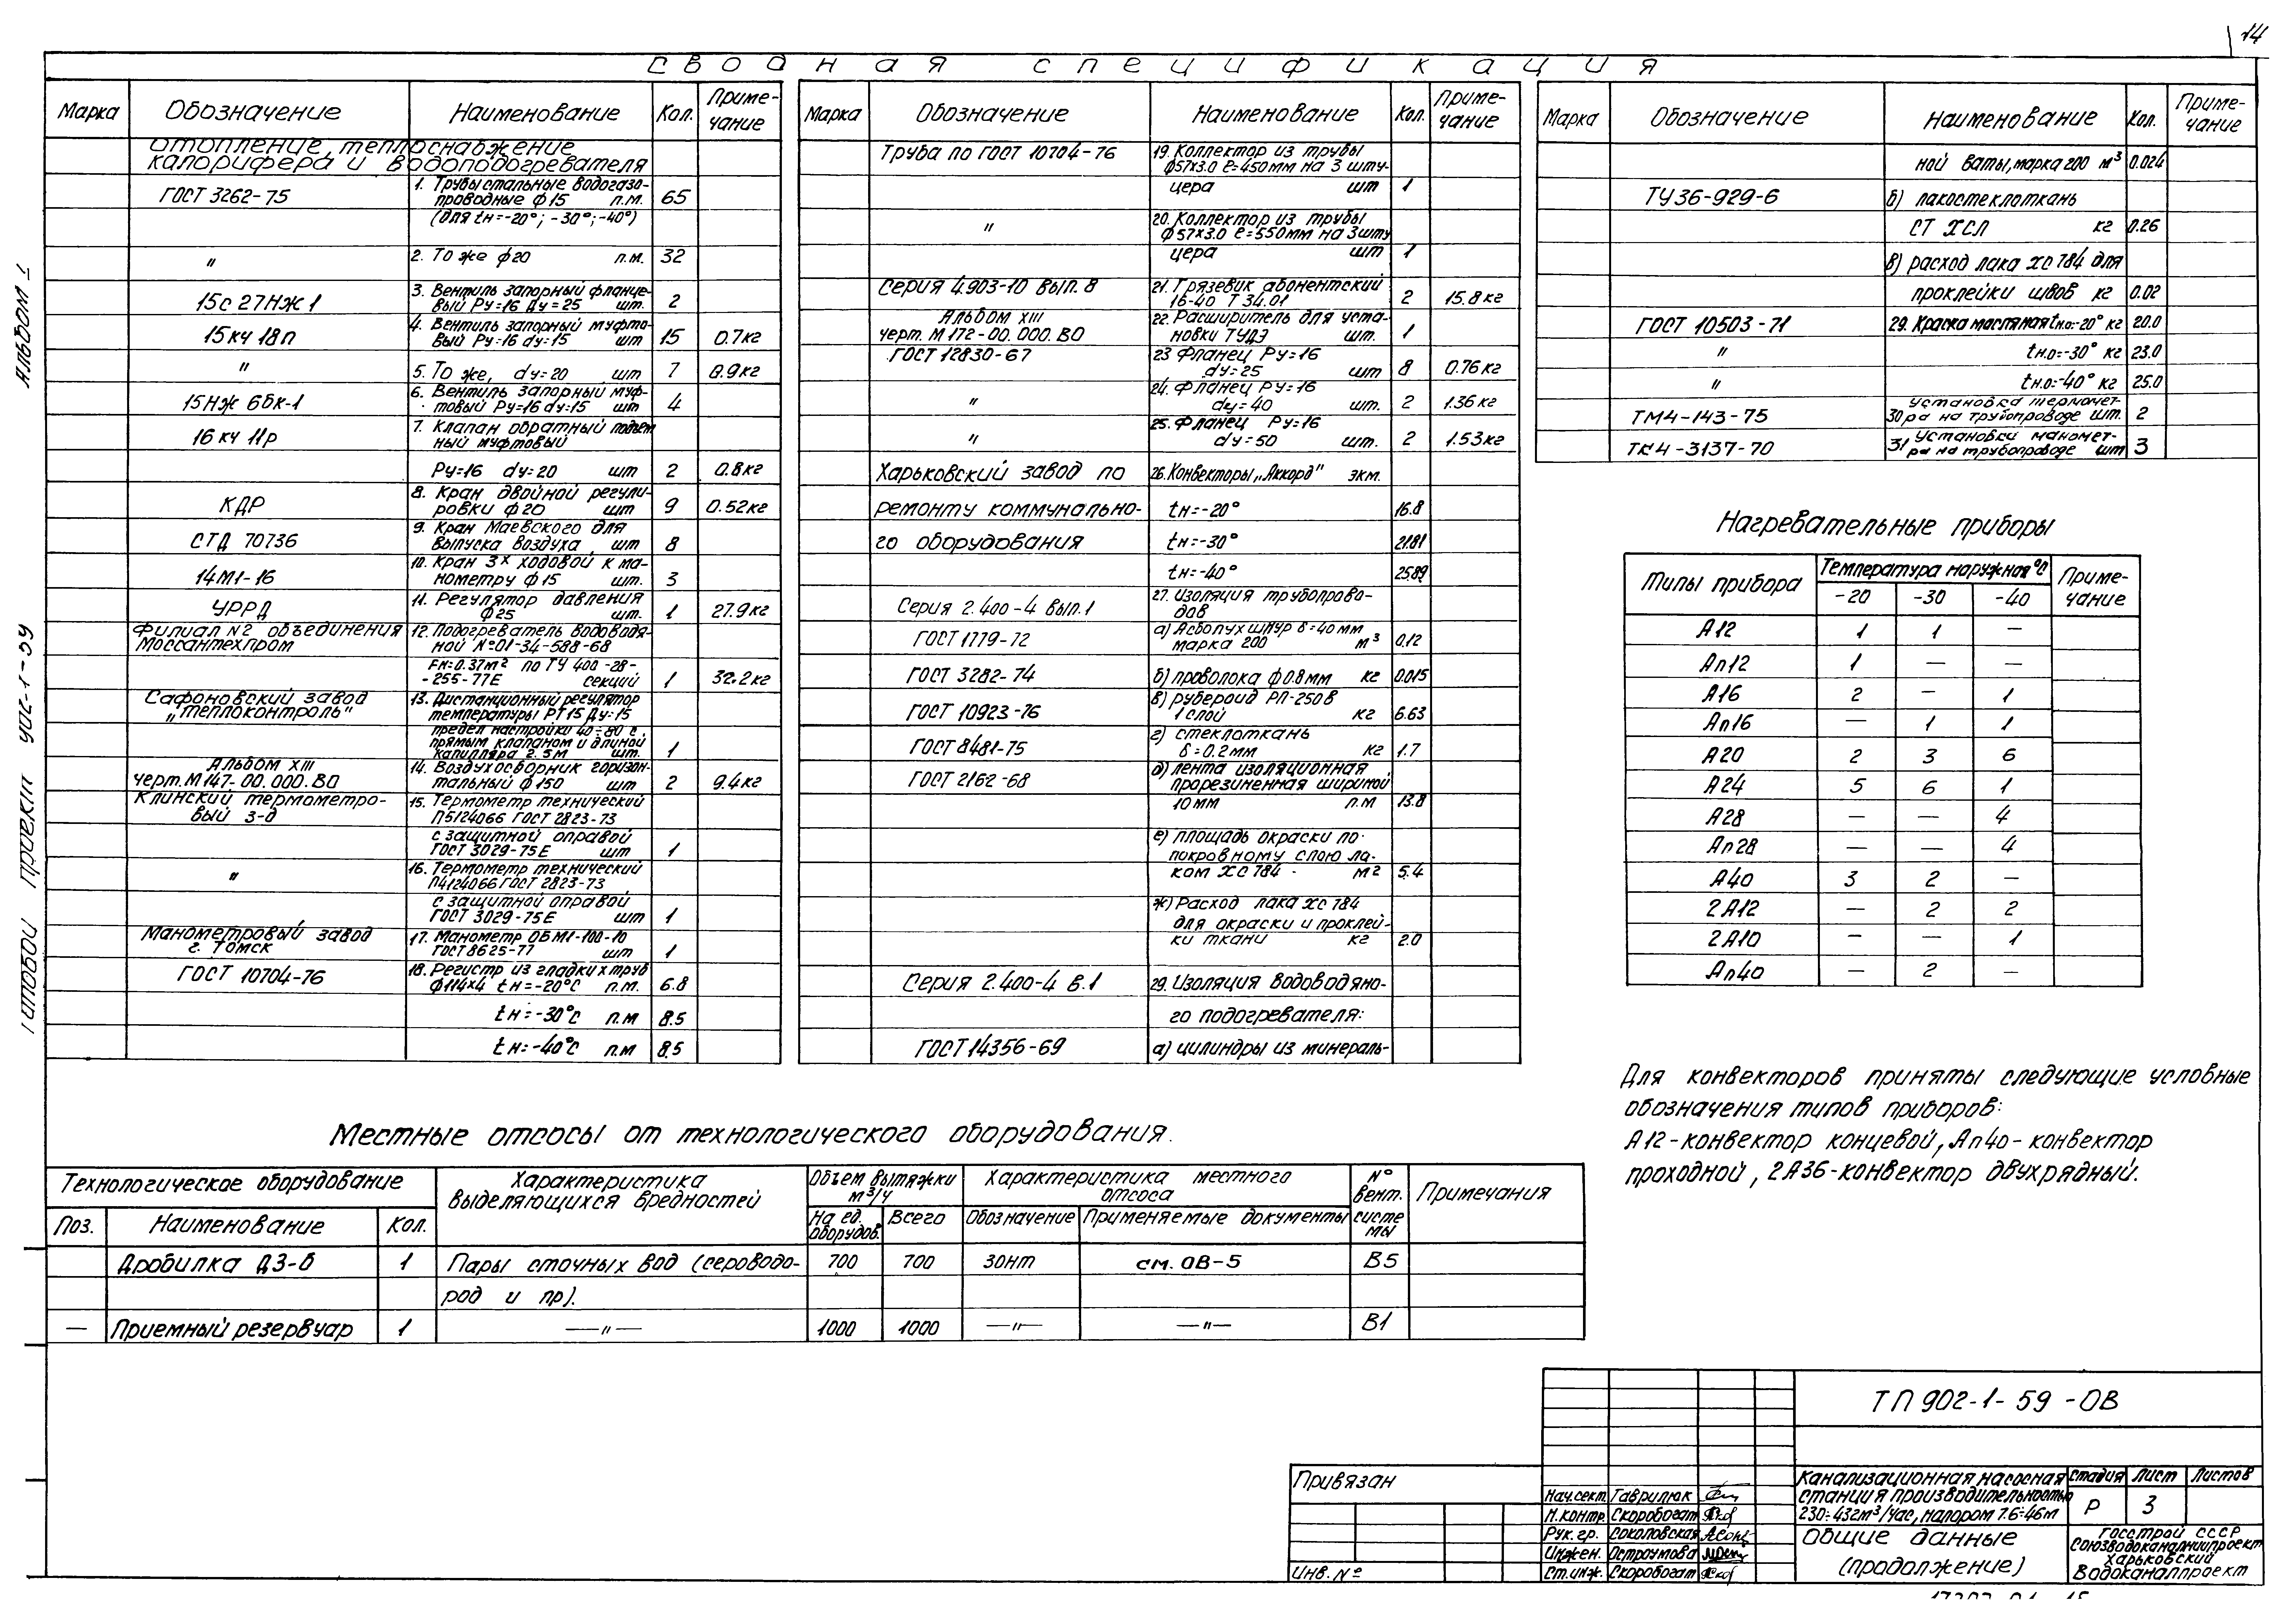 14
Сводная спецификация
Марка Обозначение Наименование Кол. Приме-чание
Отопление, теплоснабжение
калорифера и водоподогревателя
ГОСТ 3262-75 1. Трубы стальные водогазо-
проводные ф15 п.м. 65
(для tн=-20°; -30°; -40°)
" 2. То же ф20 п.м. 32
15с 27НЖ 1 3. Вентиль запорный фланце-
вый Ру=16 Ду=25 шт. 2
15кч 18п 4. Вентиль запорный муфто-
вый Ру=16 dу=15 шт 15 0.7кг
" 5. То же, dу=20 шт 7 0.9кг
15НЖ 6бк-1 6. Вентиль запорный муф-
товый Ру=16 dу=15 шт 4
16кч 11р 7. Клапан обратный подъем
ный муфтовый
Ру=16 dу=20 шт 2 0.8кг
КДР 8. Кран двойной регули-
ровки ф20 шт 9 0.52кг
СТД 70736 9. Кран Маевского для
выпуска воздуха шт 8
14М1-16 10. Кран 3х ходовой к ма-
нометру ф15 шт. 3
УРРД 11. Регулятор давления
ф25 шт. 1 27.9кг
Филиал №2 объединения 12. Подогреватель водоводя-
Моссантехпром ной №01-34-588-68
Fн=0.37м² по ТУ 400-28-
-255-77Е секций 1 32.2кг
Сафоновский завод 13. Дистанционный регулятор
„Теплоконтроль" температуры РТ15 Ду=15
предел настройки 40÷80°с,
прямым клапаном и длиной
капилляра 2.5м шт. 1
Альбом XIII 14. Воздухосборник горизон-
черт.М147-00.000.ВО тальный ф150 шт 2 9.4кг
Клинский термометро- 15. Термометр технический
вый з-д П5124066 ГОСТ 2823-73
с защитной оправой
ГОСТ 3029-75Е шт 1
" 16. Термометр технический
П4124066 ГОСТ 2823-73
с защитной оправой
ГОСТ 3029-75Е шт 1
Манометровый завод 17. Манометр ОБМ1-100-10
г. Томск ГОСТ 8625-77 шт 1
ГОСТ 10704-76 18. Регистр из гладких труб
ф114х4 tн=-20°С п.м. 6.8
tн=-30°С п.м 8.5
tн=-40°С п.м 8.5
Марка Обозначение Наименование Кол. Приме-чание
Труба по ГОСТ 10704-76 19. Коллектор из трубы
ф57х3.0 е=450мм на 3 шту-
цера шт 1
" 20. Коллектор из трубы
ф57х3.0 е=550мм на 3 шту
цера шт 1
Серия 4.903-10 вып. 8 21. Грязевик абонентский
16-40 Т 34.01 2 15.8кг
Альбом XIII 22. Расширитель для уста-
черт. М 172-00.000.ВО новки ТУДЭ шт. 1
ГОСТ 12830-67 23 Фланец Ру=16
dу=25 шт 8 0.76кг
" 24. Фланец Ру=16
dу=40 шт. 2 1.36кг
" 25. Фланец Ру=16
dу=50 шт. 2 1.53кг
Харьковский завод по 26. Конвекторы „Аккорд" экм.
ремонту коммунально- tн=-20° 16.8
го оборудования tн=-30° 21.81
tн=-40° 25.89
Серия 2.400-4 вып.1 27. Изоляция трубопрово-
дов
ГОСТ 1779-72 а) Асбопухшнур δ=40мм
марка 200 м³ 0.12
ГОСТ 3282-74 б) проволока ф0.8мм кг 0.015
ГОСТ 10923-76 в) рубероид РП-250В
1 слой кг 6.63
ГОСТ 8481-75 г) стеклоткань
δ=0.2мм кг 1.7
ГОСТ 2162-68 д) лента изоляционная
прорезиненная шириной
10мм п.м 13.8
е) площадь окраски по-
покровному слою ла-
ком ХС 784 - м2 5.4
ж) Расход лака хс 784
для окраски и проклей-
ки ткани кг 2.0
Серия 2.400-4 в.1 29. Изоляция водоводяно-
го подогревателя:
ГОСТ 14356-69 а) цилиндры из минераль-
Марка Обозначение Наименование Кол. Приме-чание
ной ваты, марка 200 м³ 0.024
ТУ36-929-6 б) лакостеклоткань
СТ ХСЛ кг 0.26
в) расход лака хс 784 для
проклейки швов кг 0.02
ГОСТ 10503-71 29. Краска масляная tн.о=-20° кг 20.0
" tн.о=-30° кг 23.0
" tн.о=-40° кг 25.0
ТМ4-143-75 30 Установка термомет-
ра на трубопроводе шт. 2
ТК4-3137-70 31 Установки маномет-
ра на трубопроводе шт 3
Нагревательные приборы
Типы прибора Температура наружная °С Приме-чание
-20 -30 -40
А12 1 1 —
Ап12 1 — —
А16 2 - 1
Ап16 — 1 1
А20 2 3 6
А24 5 6 1
А28 — — 4
Ап28 — — 4
А40 3 2 —
2А12 — 2 2
2А10 — — 1
Ап40 — 2 —
Для конвекторов приняты следующие условные
обозначения типов приборов:
А12-конвектор концевой, Ап40-конвектор
проходной, 2А36-конвектор двухрядный.
Местные отсосы от технологического оборудования.
Технологическое оборудование Характеристика выделяющихся вредностей Объем вытяжки м³/ч Характеристика местного отсоса № вент. систе мы Примечания
Поз. Наименование Кол. На ед. оборудов. Всего Обозначение Применяемые документы
Дробилка Д3-б 1 Пары сточных вод (сероводо- 700 700 Зонт см. ОВ-5 В5
род и пр).
— Приемный резервуар 1 —"— 1000 1000 —"— —"— В1
Альбом I
Типовой проект 902-1-59
ТП 902-1-59-ОВ
Привязан
Инв. №
Нач.сект. Гаврилюк
Н.контр. Скоробогат
Рук.гр. Соколовская
Инжен. Остроумова
Ст.инж. Скоробогат
Канализационная насосная
станция производительностью
230÷432м³/час, напором 7.6÷46м
Стадия Лист Листов
Р 3
Общие данные
(продолжение)
Госстрой СССР
Союзводоканалниипроект
Харьковский
Водоканалпроект